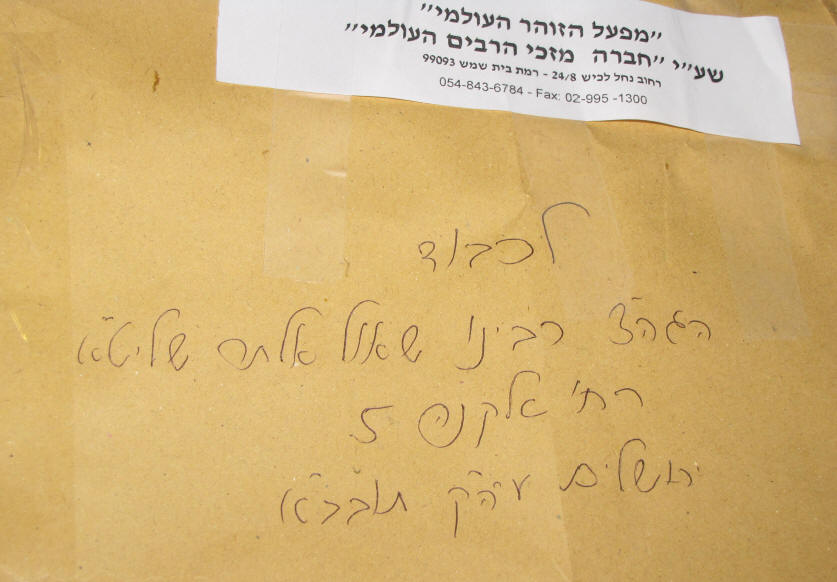 "מפעל הזוהר העולמי"
שע"י "חברה מזכי הרבים העולמי"
רחוב נחל לכיש 24/8 - רמת בית שמש 99093
054-843-6784 - Fax: 02-995 -1300
לכבוד
הגה"צ רבינו שאול אלתר שליט"א
רח' אלקנה 5
ירושלים עיה"ק תובב"א